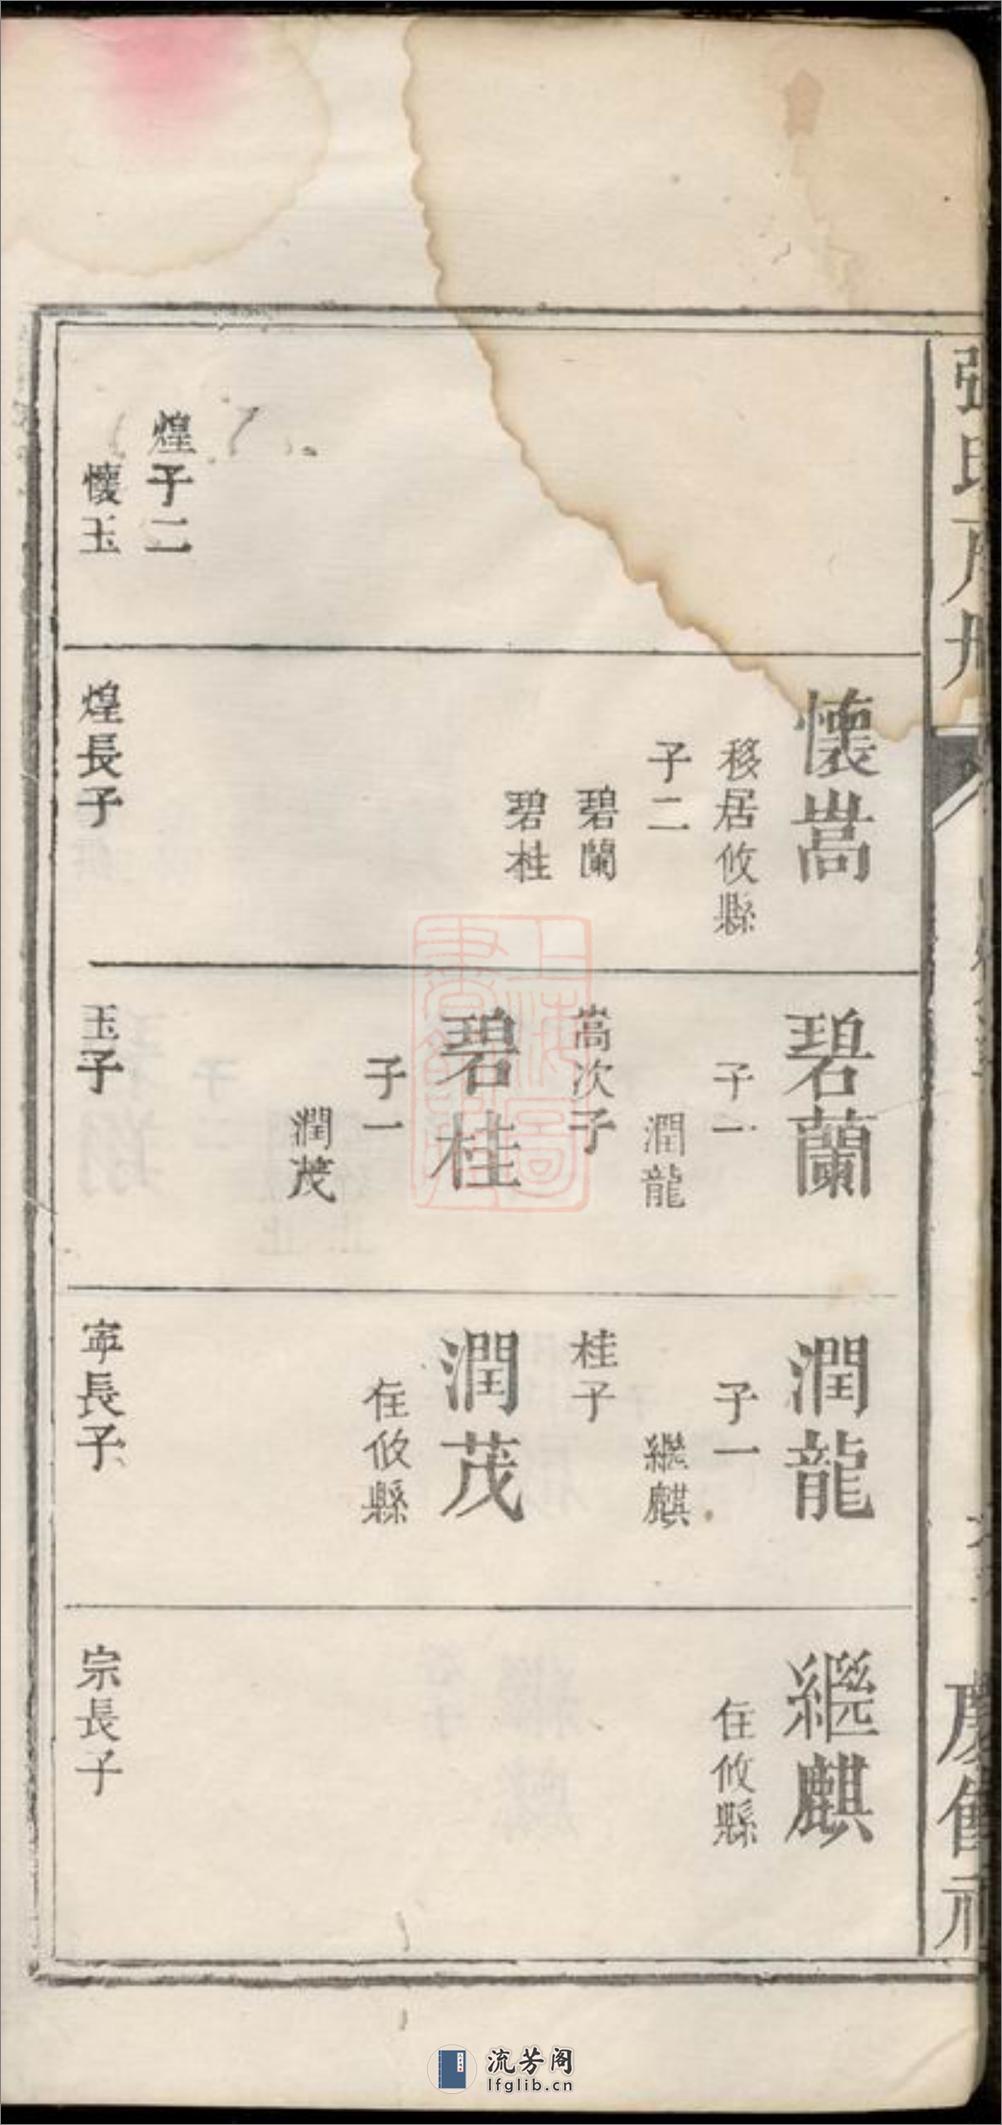 張氏
懷嵩
移居攸縣
子二
碧蘭
碧桂
煌子二
懷玉
煌長子
碧蘭
子一
潤龍
嵩次子
碧桂
子一
潤茂
玉子
潤龍
子一
繼麒
桂子
潤茂
住攸縣
寧長子
繼麒
住攸縣
宗長子
上海圖書館藏
流芳阁
lfglib.cn